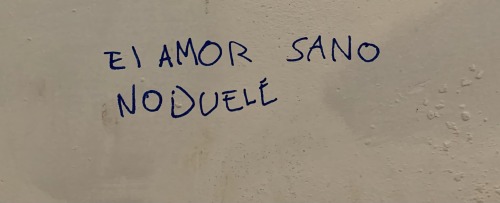 El AMOR SANO
NO DUELÉ